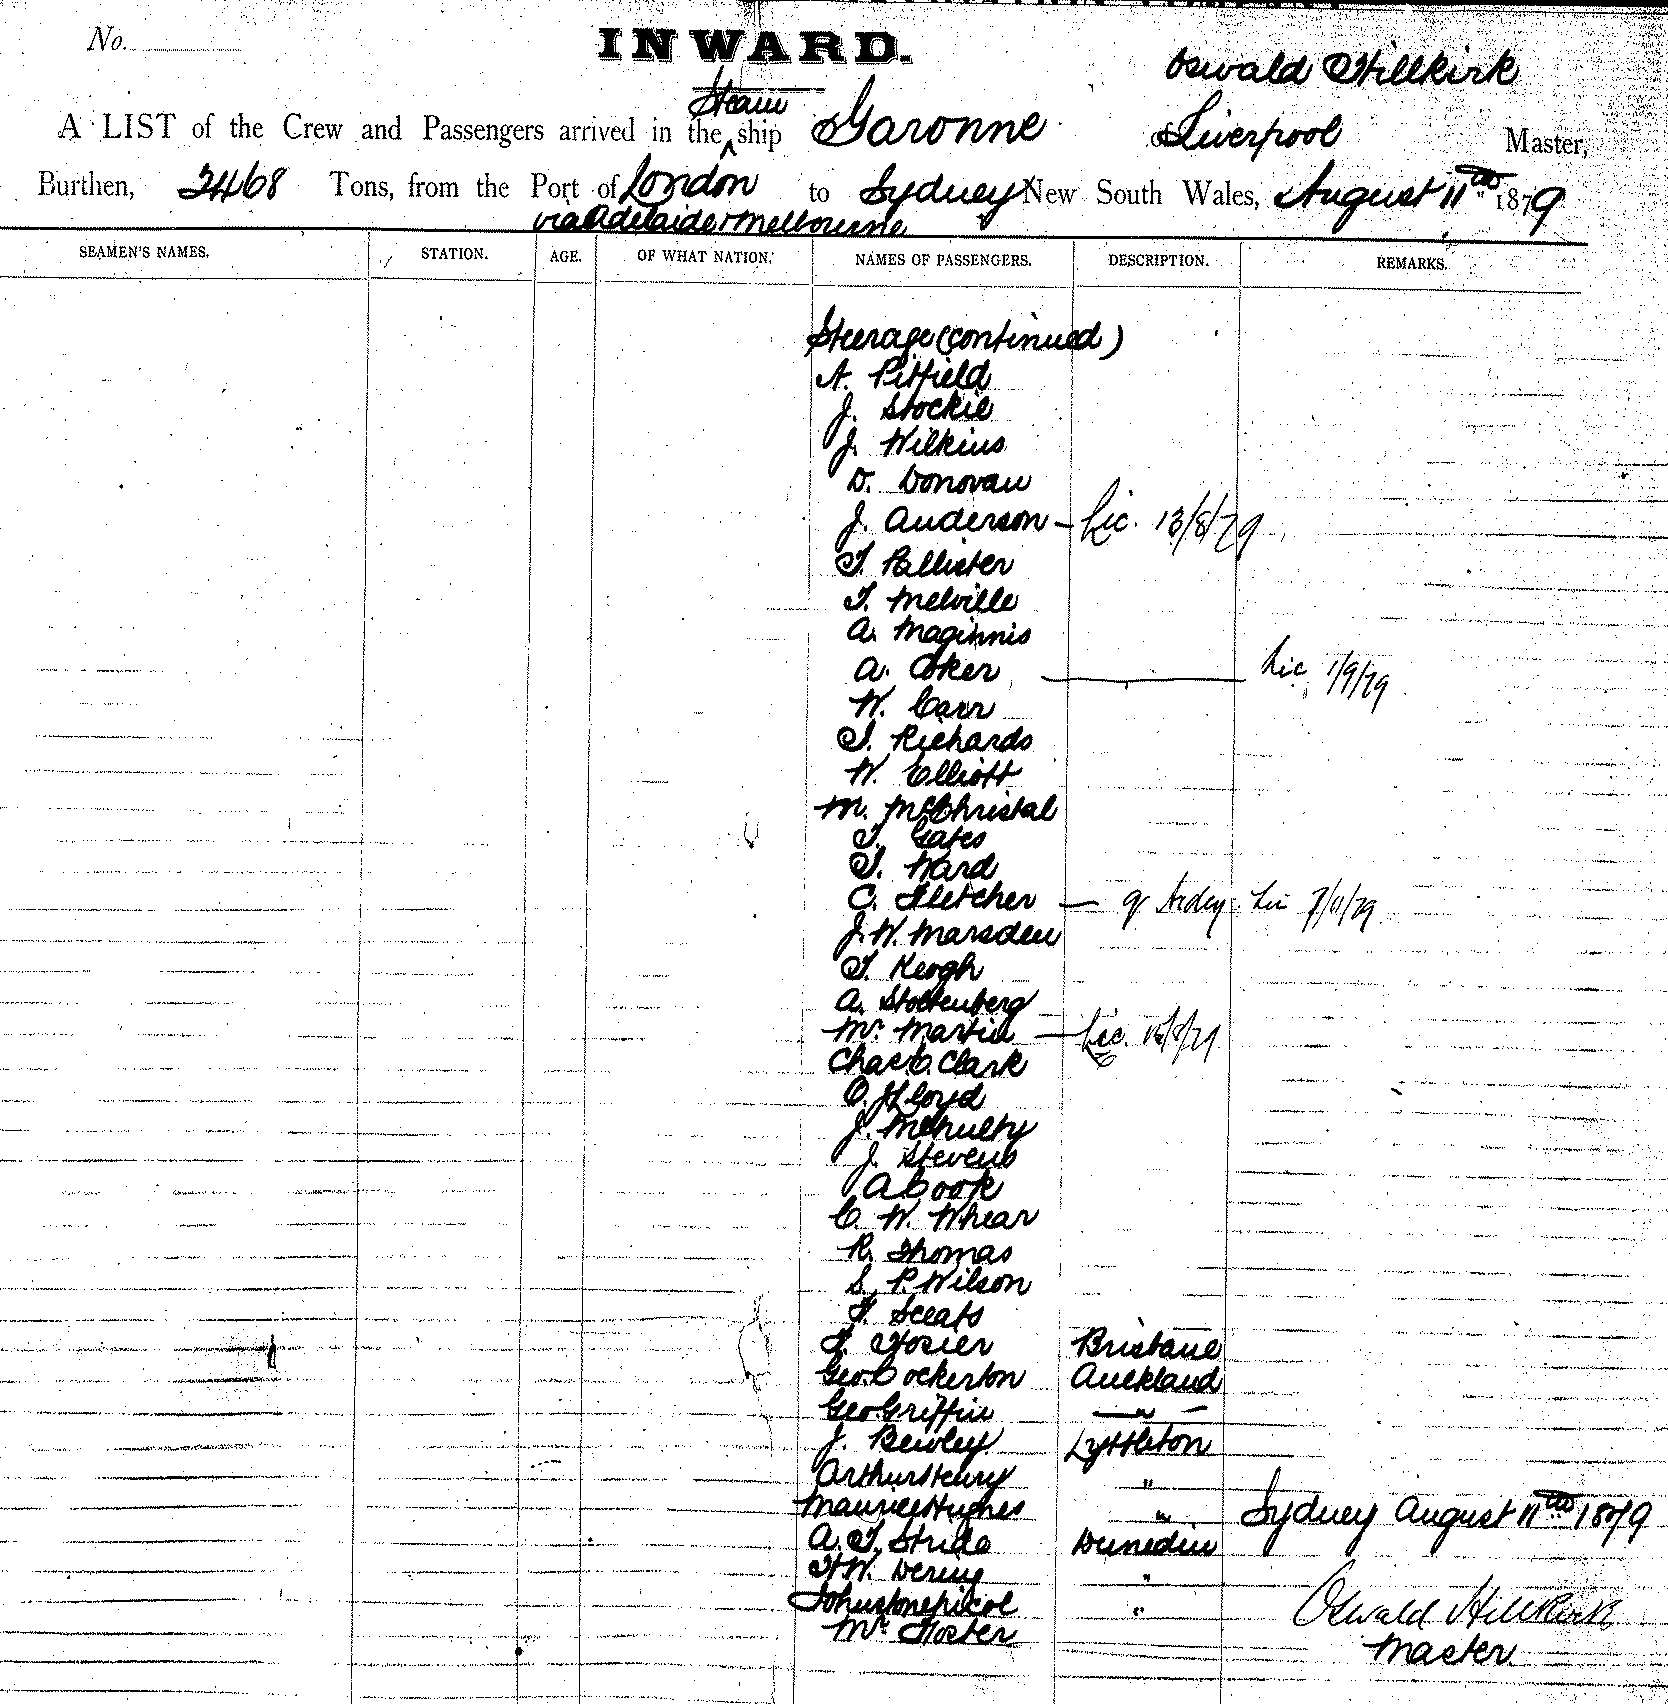 No.
INWARD.
Oswald Hillkirk
Steam
A LIST of the Crew and Passengers arrived in the ship Garonne of Liverpool Master,
Burthen, 2468 Tons, from the Port of London to Sydney New South Wales, August 11th 1879
via Adelaide & Melbourne
SEAMEN'S NAMES. STATION. AGE. OF WHAT NATION. NAMES OF PASSENGERS. DESCRIPTION. REMARKS.
Steerage (continued)
A. Pitfield
J. Stockie
J. Wilkins
D. Donovan
J. Anderson - Lic. 13/8/79
T. Pallister
T. Melville
A. Maginnis
A. Coker Lic 1/9/79
W. Carr
T. Richards
W. Elliott
M. McChristal
T. Gates
T. Ward
C. Fletcher - Lic 7/11/79
J. W. Marsden
T. Keogh
A. Stoltenberg
Mr. Martin - Lic. 15/8/79
Chas C. Clark
O. H. Lloyd
J. McNulty
J. Stevens
A Cook
C. W. Whear
R. Thomas
S. P. Wilson
F. Sceats
F. Hosier Brisbane
Geo. Cockerton Auckland
Geo Griffin — " —
J. Bewley Lyttleton
Arthur Henry "
Maurice Hughes " Sydney August 11th 1879
A. T. Stride Dunedin
H W. Dering "
Johnstone Nicol " Oswald Hillkirk
Mr Foster Master